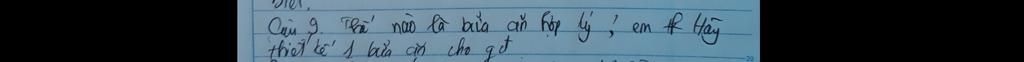 Câu 9. Thế nào là bữa ăn hợp lý, em Hãy
thiết kế 1 bữa ăn cho gđ